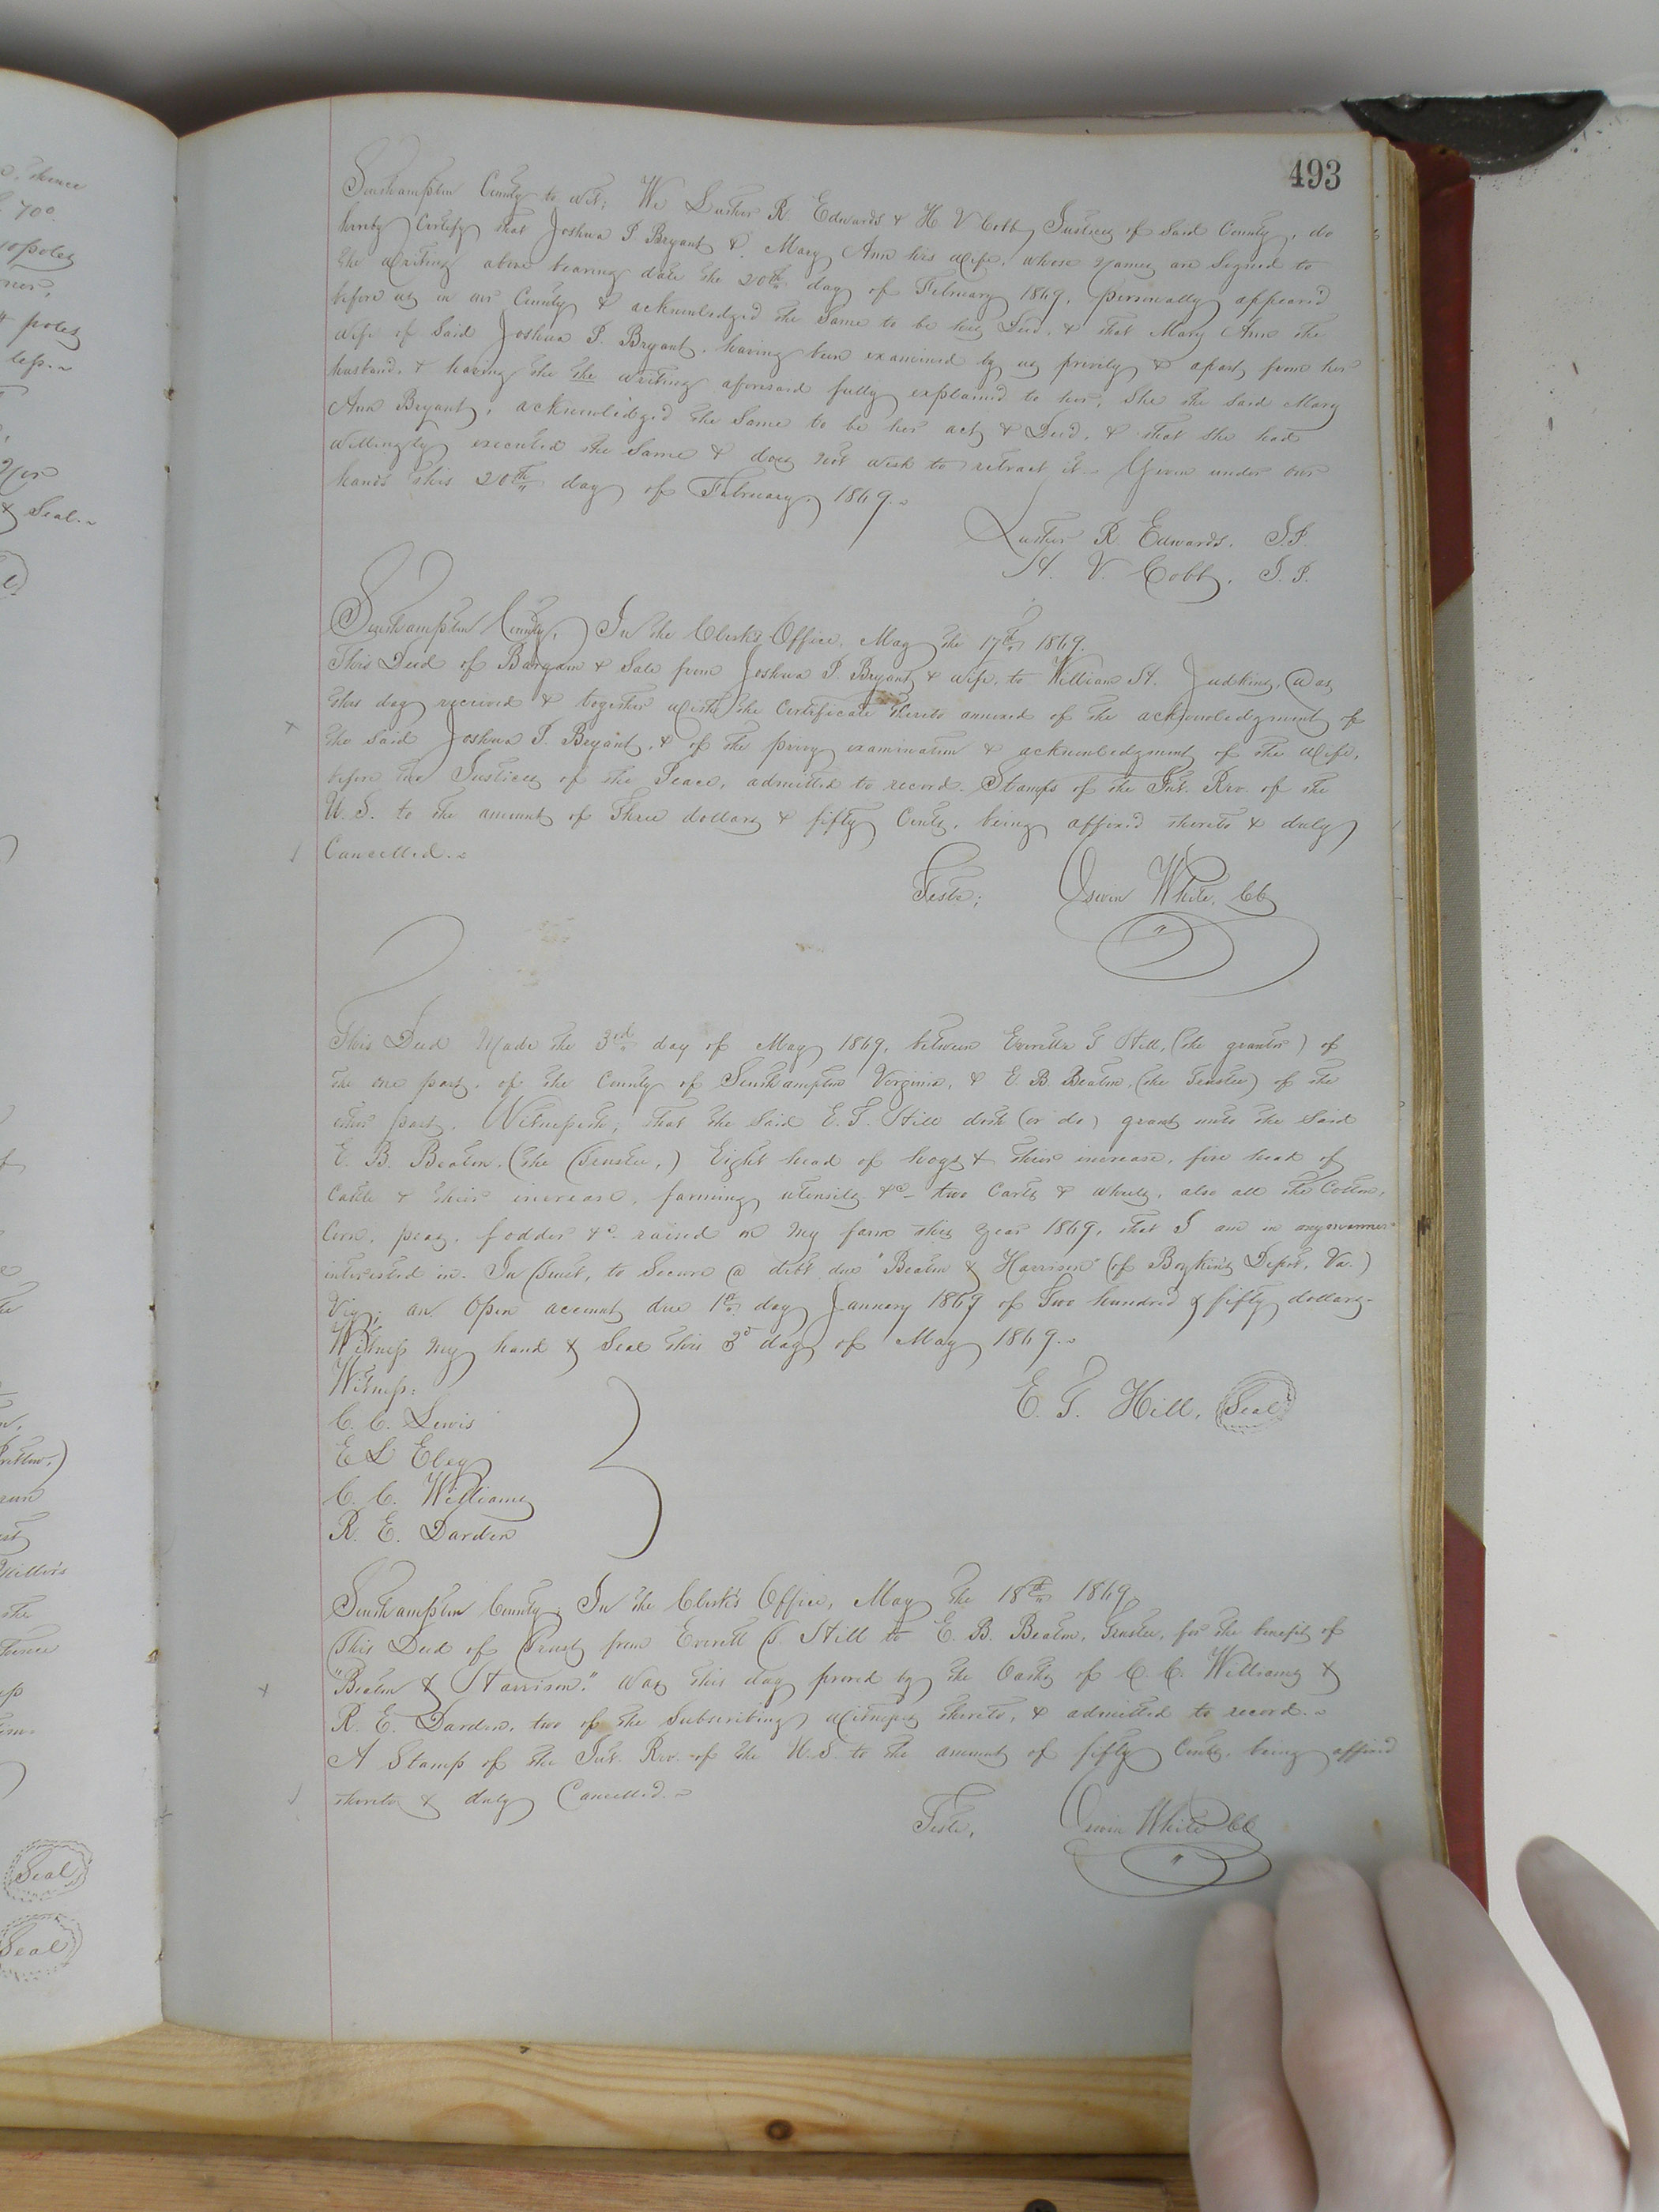 493
Southampton County to wit; We Luther R. Edwards & H V Cobb, Justices of Said County, do
hereby Certify that Joshua P. Bryant & Mary Ann his wife, whose Names are Signed to
the Writing above bearing date the 20th day of February 1869, personally appeared
before us in our County & acknowledged the Same to be their Deed. & that Mary Ann the
wife of Said Joshua P. Bryant, having been examined by us privily & apart from her
husband, & having the the Writing aforesaid fully explained to her, She the Said Mary
Ann Bryant, acknowledged the Same to be her act & Deed, & that She had
Willingly executed the Same & does Not wish to retract it. Given under our
hands this 20th day of February, 1869.
Luther R Edwards. J.P.
H. V. Cobb, J. P.
Southampton County, In the Clerk's Office, May the 17th 1869.
This Deed of Bargain & Sale from Joshua P. Bryant & wife, to William H. Judkins, Was
this day received & together with the Certificate thereto annexed of the acknowledgment of
the Said Joshua P. Bryant, & of the privy examination & acknowledgment of the Wife,
before two Justices of the Peace, admitted to record. Stamps of the Int. Rev. of the
U. S. to the amount of Three dollars & fifty Cents, being affixed thereto & duly
Cancelled.
Teste; Orwin White, CC
This Deed Made the 3rd day of May 1869, between Everette T Hill, (the grantor) of
the one part, of the County of Southampton Virginia, & E. B. Beaton, (the Trustee) of the
other part, Witnesseth; that the Said E. T. Hill doth (or do) grant unto the Said
E. B. Beaton, (the Trustee,) Eight head of hogs & their increase, five head of
Cattle & their increase, farming utensils &c- two Carts & wheels, also all the Cotton,
Corn, peas, fodder &c raised on My farm this year 1869, that I am in any manner
interested in. In Trust, to Secure a debt due "Beaton & Harrison" (of Boykin's Depot, Va.)
Viz; an Open account due 1st day January 1869 of Two hundred & fifty dollars-
Witness My hand & Seal this 3d day of May 1869.
Witness:
E. T. Hill, Seal
C. C. Lewis
E L Eley
C. C. Williams
R. E. Darden
Southampton County; In the Clerk's Office, May the 18th 1869
This Deed of Trust from Everett T. Hill to E. B. Beaton, Trustee, for the benefit of
"Beaton & Harrison." Was this day proved by the Oaths of C. C. Williams &
R. E. Darden, two of the Subscribing Witnesses thereto, & admitted to record.
A Stamp of the Int. Rev. of the U. S. to the amount of fifty Cents, being affixed
thereto & duly Cancelled.
Teste, Orwin White CC
Seal
Seal